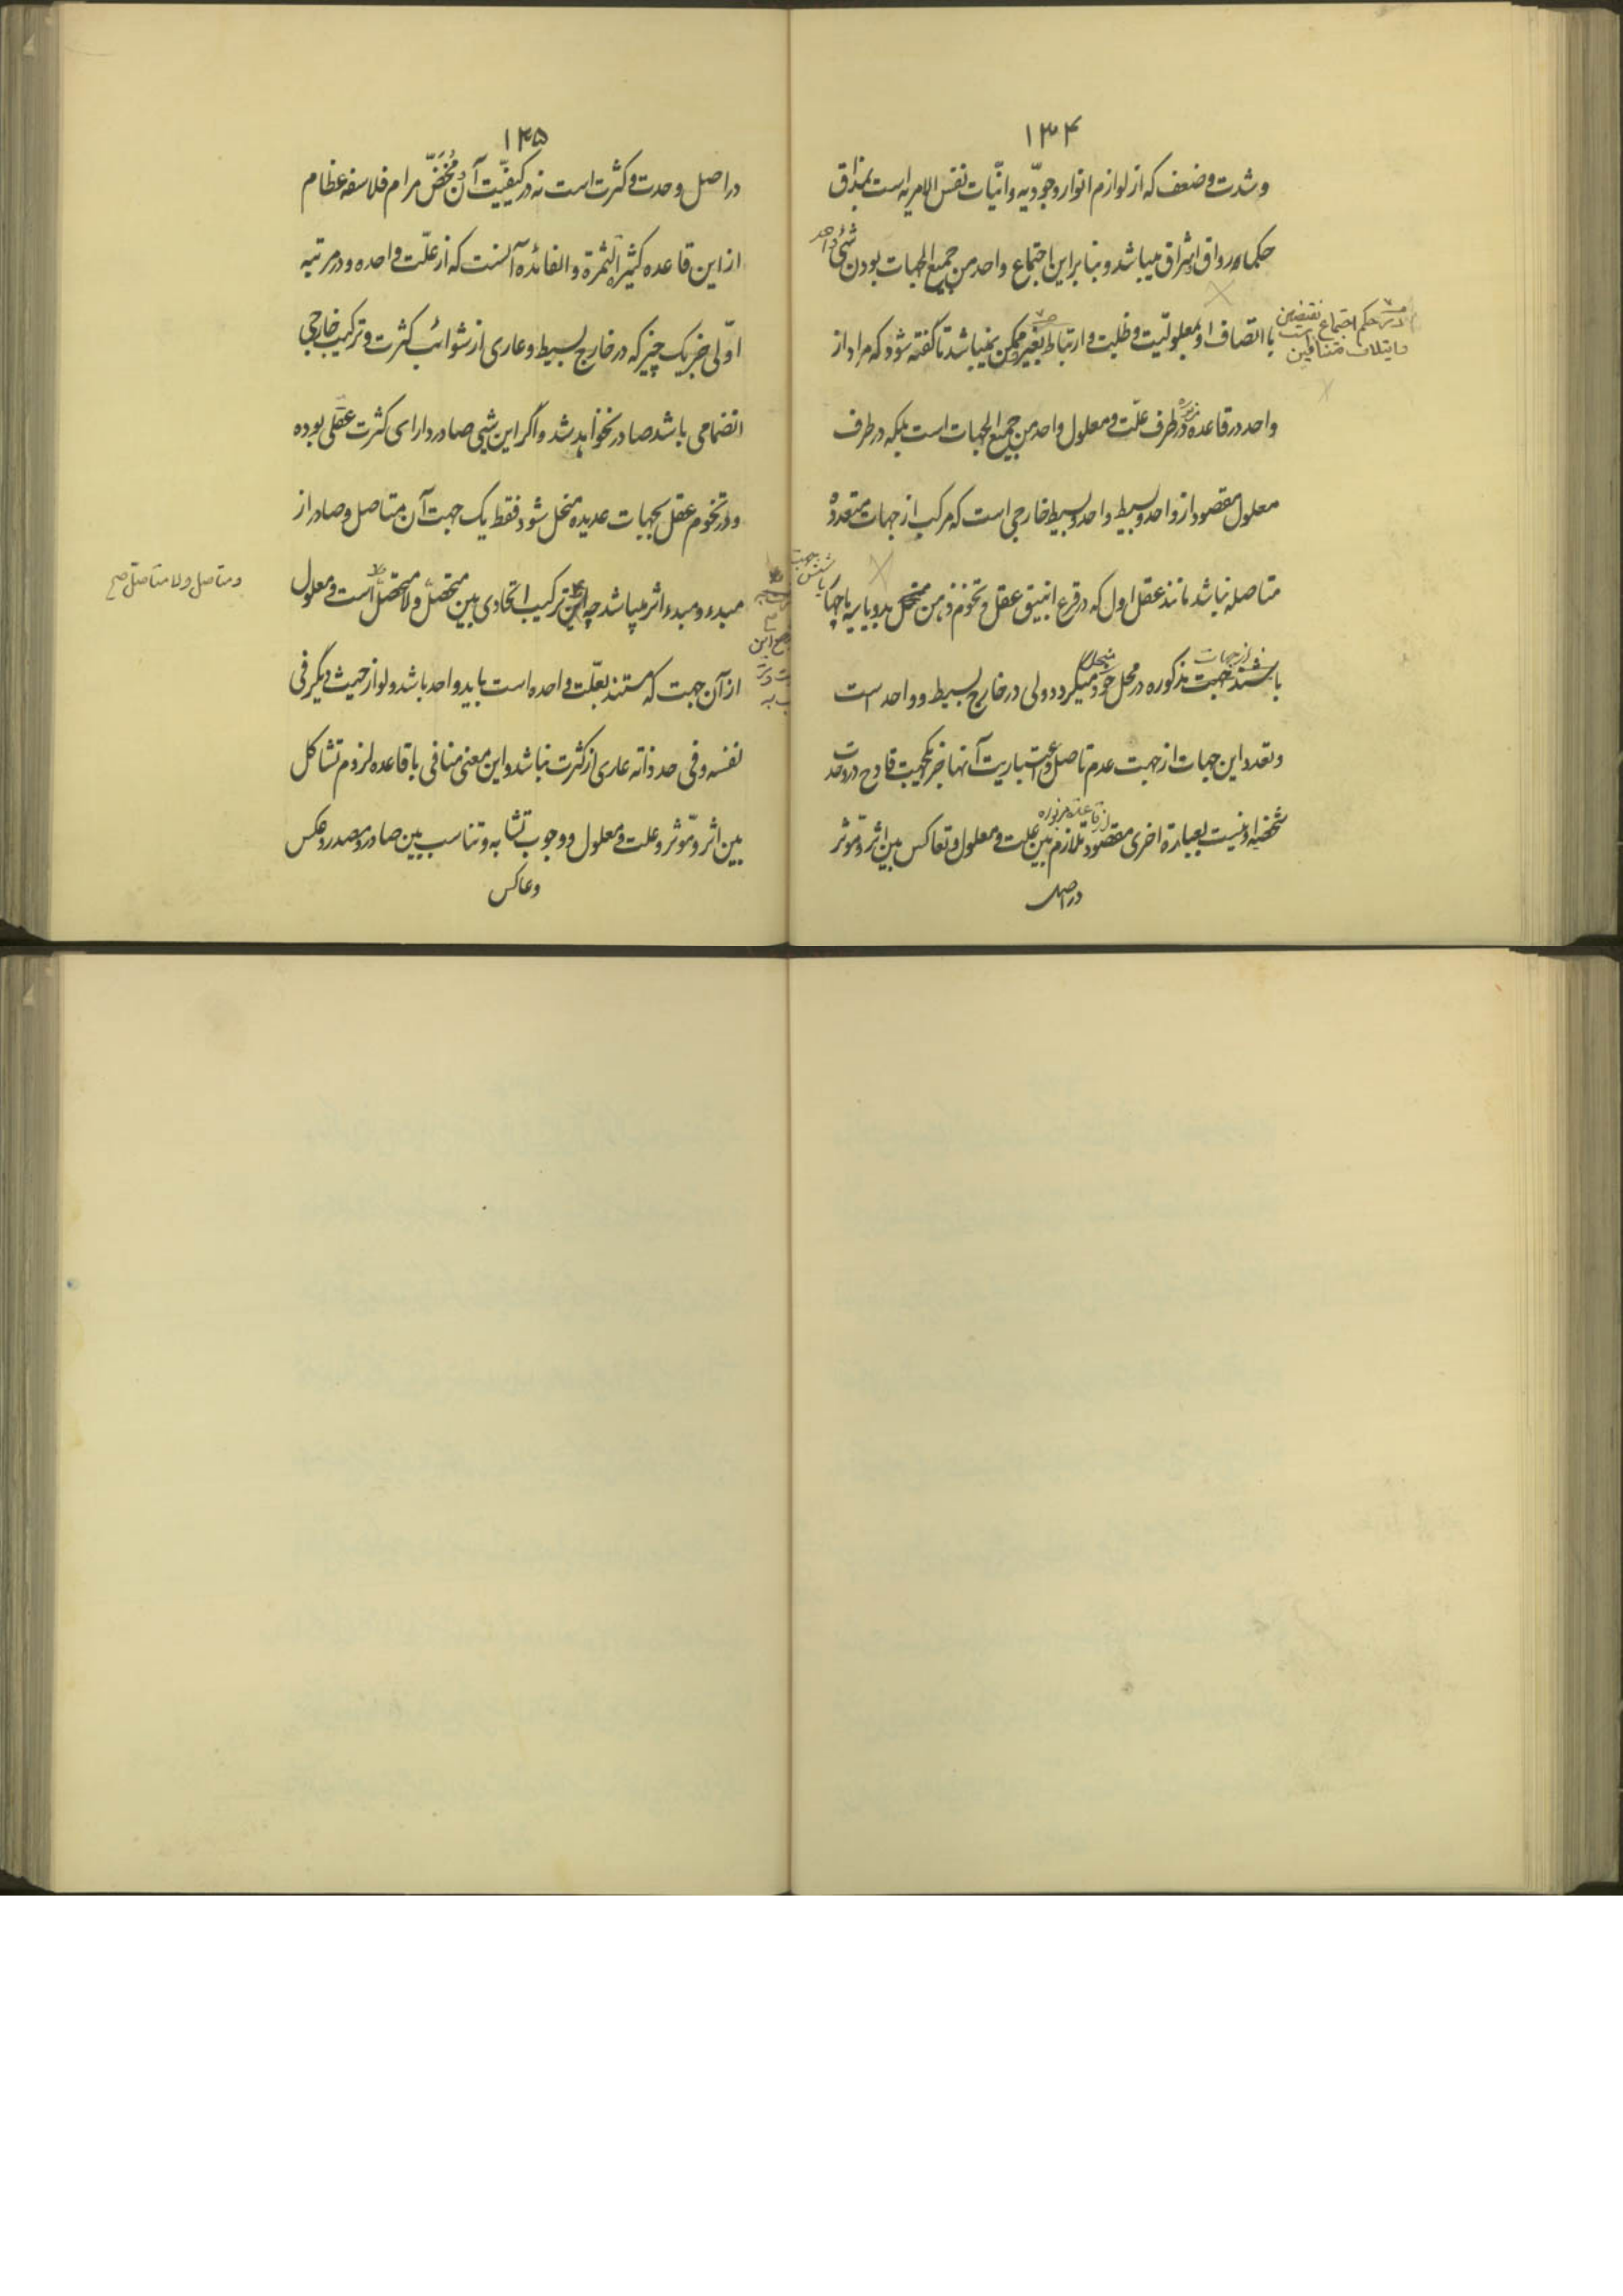 ۱۳۴
وشدت وضعف که از لوازم انوار وجودیه وانیات نفس الامریه است بمذاق
حکماء رواق واشراق میباشد وبنا براین اجتماع واحد من جمیع الجهات بودن شیئ واحد
با اتصاف او بمعلولیت وظلیت وارتباط بغیر ممکن نمیباشد تا گفته شود که مراد از
در حکم اجتماع نقیضین
وایتلاف متنافیین
واحد در قاعده مزبوره در طرف علت ومعلول واحد من جمیع الجهات است بلکه در طرف
معلول مقصود از واحد وبسیط واحد وبسیط خارجی است که مرکب از جهات متعدده
متاصله نباشد مانند عقل اول که در قرع انبیق عقل وتخوم ذهن منحل بدو یا سه یا چهار
یا شش جهت
باشند جهت مذکوره در محل خود میگردد ولی در خارج بسیط و واحد است
وتعدد این جهات از جهت عدم تاصل واعتباریت آنها جز یکجهت قادح در وحدت
شخصیه او نیست بعبارة اخری مقصود از قاعده مزبوره تلازم بین علت ومعلول وتعاکس بین اثر ومؤثر
در اصل
۱۳۵
در اصل وحدت وکثرت است نه در کیفیت آن ومُخَضّ مرام فلاسفه عظام
از این قاعده کثیر الثمرة والفائده آنست که از علت واحده ودر مرتبه
اولی جز یک چیز که در خارج بسیط وعاری از شوائب کثرت وترکیب خارجی
انضمامی باشد صادر نخواهد شد واگر این شیئ صادر دارای کثرت عقلی بوده
ودر تخوم عقل بجهات عدیده منحل شود فقط یک جهت آن متاصل وصادر از
مبدء ومبدء اثر میباشد چه این ترکیب اتحادی بین متحصل ولا متحصل است ومعلول
ومتاصل ولا متاصل صح
از آن جهت که مستند بعلت واحده است باید واحد باشد ولو از حیث دیگر فی
نفسه وفی حد ذاته عاری از کثرت نباشد واین معنی منافی با قاعده لزوم تشاکل
بین اثر ومؤثر وعلت ومعلول ووجوب تشابه وتناسب بین صادر ومصدر وعکس
وعاکس